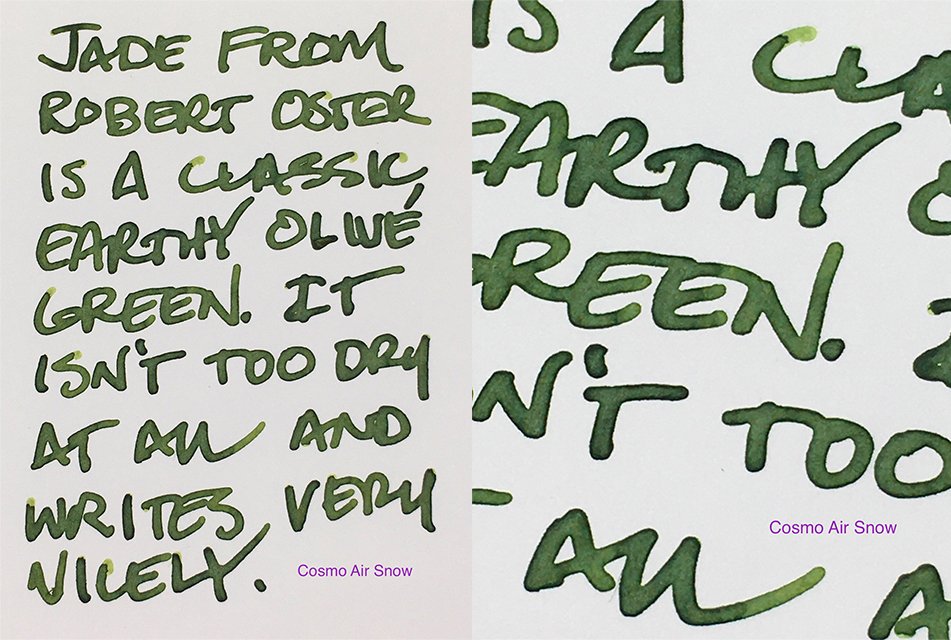 JADE FROM
ROBERT OSTER
IS A CLASSIC,
EARTHY OLIVE
GREEN. IT
ISN'T TOO DRY
AT ALL AND
WRITES VERY
NICELY.
Cosmo Air Snow
IS A CLA
EARTHY
GREEN.
N'T TOO
ALL
Cosmo Air Snow
A